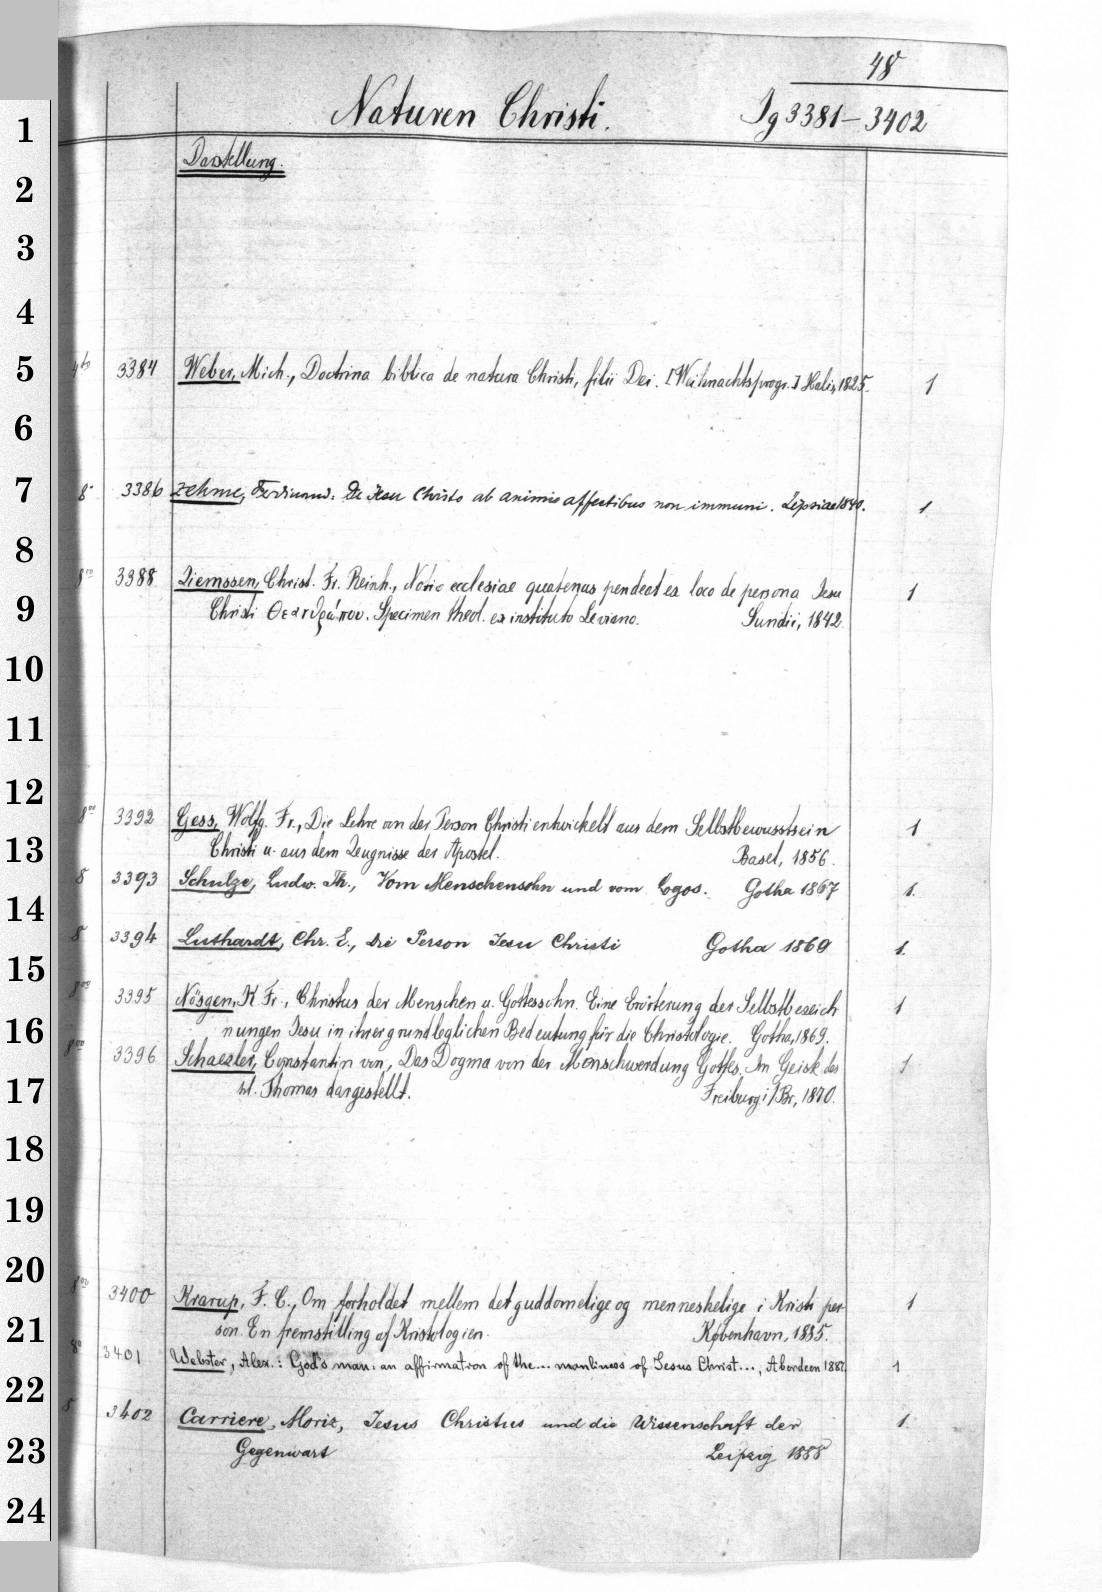 48
Naturen Christi. Ig 3381-3402
Darstellung.
1
2
3
4
5
6
7
8
9
10
11
12
13
14
15
16
17
18
19
20
21
22
23
24
3384 Weber, Mich., Doctrina biblica de natura Christi, filii Dei. [Weihnachtsprogr.] Halis, 1825. 1
8° 3386 Zehme, Ferdinand: De Jesu Christo ab animis affectibus non immuni. Lipsiae 1840. 1
8vo 3388 Ziemssen, Christ. Fr. Reinh., Notio ecclesiae quatenus pendeat ex loco de persona Jesu 1
Christi Θεανθρώπου. Specimen theol. ex instituto Leviano. Sundii, 1842.
8vo 3392 Gess, Wolfg. Fr., Die Lehre von der Person Christi entwickelt aus dem Selbstbewusstsein 1
Christi u. aus dem Zeugnisse der Apostel. Basel, 1856.
8 3393 Schulze, Ludw. Th., Vom Menschensohn und vom Logos. Gotha 1867 1.
8 3394 Luthardt, Chr. E., Die Person Jesu Christi Gotha 1869 1.
8vo 3395 Nösgen, K Fr., Christus der Menschen u. Gottessohn. Eine Erörterung der Selbstbezeich 1
nungen Jesu in ihrer grundleglichen Bedeutung für die Christologie. Gotha, 1869.
8vo 3396 Schaezler, Constantin von, Das Dogma von der Menschwerdung Gottes. Im Geiste des 1
hl. Thomas dargestellt. Freiburg i/Br., 1870.
8vo 3400 Krarup, F. C., Om forholdet mellem det guddomelige og menneskelige i Kristi per 1
son. En fremstilling af Kristologien. København, 1885.
8° 3401 Webster, Alex.: God's man: an affirmation of the... manliness of Jesus Christ..., Aberdeen 1887. 1
8 3402 Carriere, Moriz, Jesus Christus und die Wissenschaft der 1.
Gegenwart Leipzig 1888